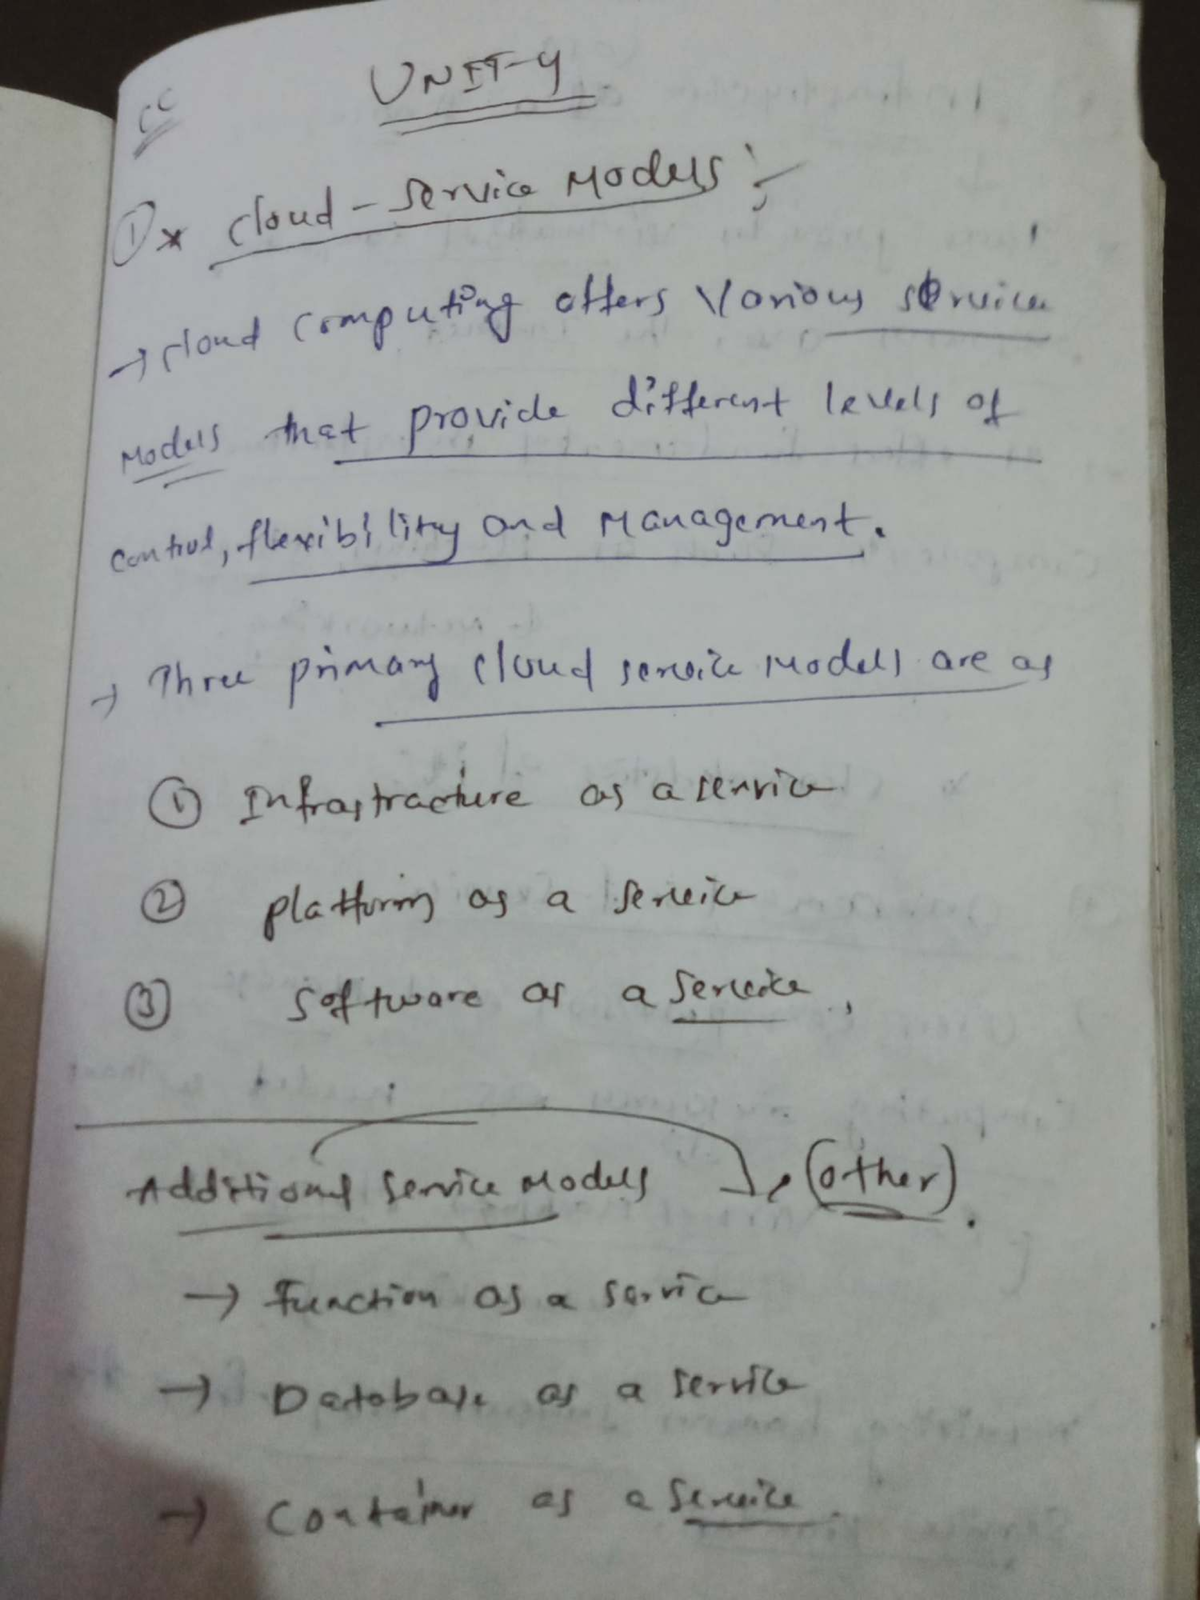 CC
UNIT-4
① * Cloud - Service Models :-
→ cloud computing offers Various service
Models that provide different levels of
control, flexibility and Management.
→ Three primary cloud service Models are as
① Infrastracture as a service
② platform as a service
③ Software as a service.
Additional Service Models → (other).
→ Function as a service
→ Database as a service
→ Container as a service.